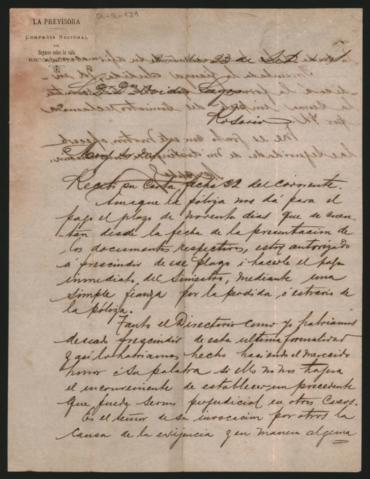 LA PREVISORA
COMPAÑÍA NACIONAL
DE
Seguros sobre la vida
23 de
Rosario
Muy Sr.
Recibí su carta fecha 22 del corriente.
Aunque la póliza nos da para el
pago el plazo de noventa dias que se cuen-
tan desde la fecha de la presentacion de
los documentos respectivos, estoy autorizado
á prescindir de ese plazo i hacerle el pago
inmediato del siniestro, mediante una
simple fianza por la perdida ó estravio de
la póliza.
Tanto el Directorio como yo habriamos
deseado prescindir de esta ultima formalidad
y asi lo habriamos hecho haciendo el merecido
honor á su palabra si ello no nos trajera
el inconveniente de establecer un precedente
que puede sernos perjudicial en otros casos.
Es el temor de su invocacion por otros la
causa de la exijencia y en manera alguna